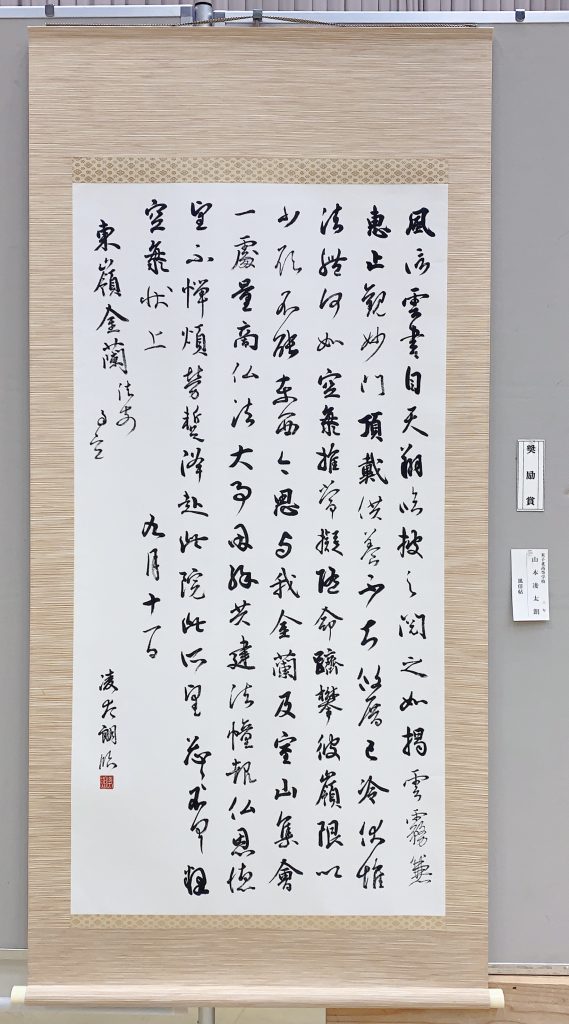 風信雲書自天翔臨披之閲之如揭雲霧兼
恵止観妙門頂戴供養不知攸厝已冷伏惟
法體何如空海推常擬随命躋攀彼嶺限以
少願不能東西今思与我金蘭及室山集會
一處量商仏法大事因縁共建法幢報仏恩徳
望不憚煩勞蹔降赴此院此所望々忩々不具釋
空海状上　九月十一日
東嶺金蘭法前
謹空
凌太朗臨
奨励賞
山本凌太朗
風信帖